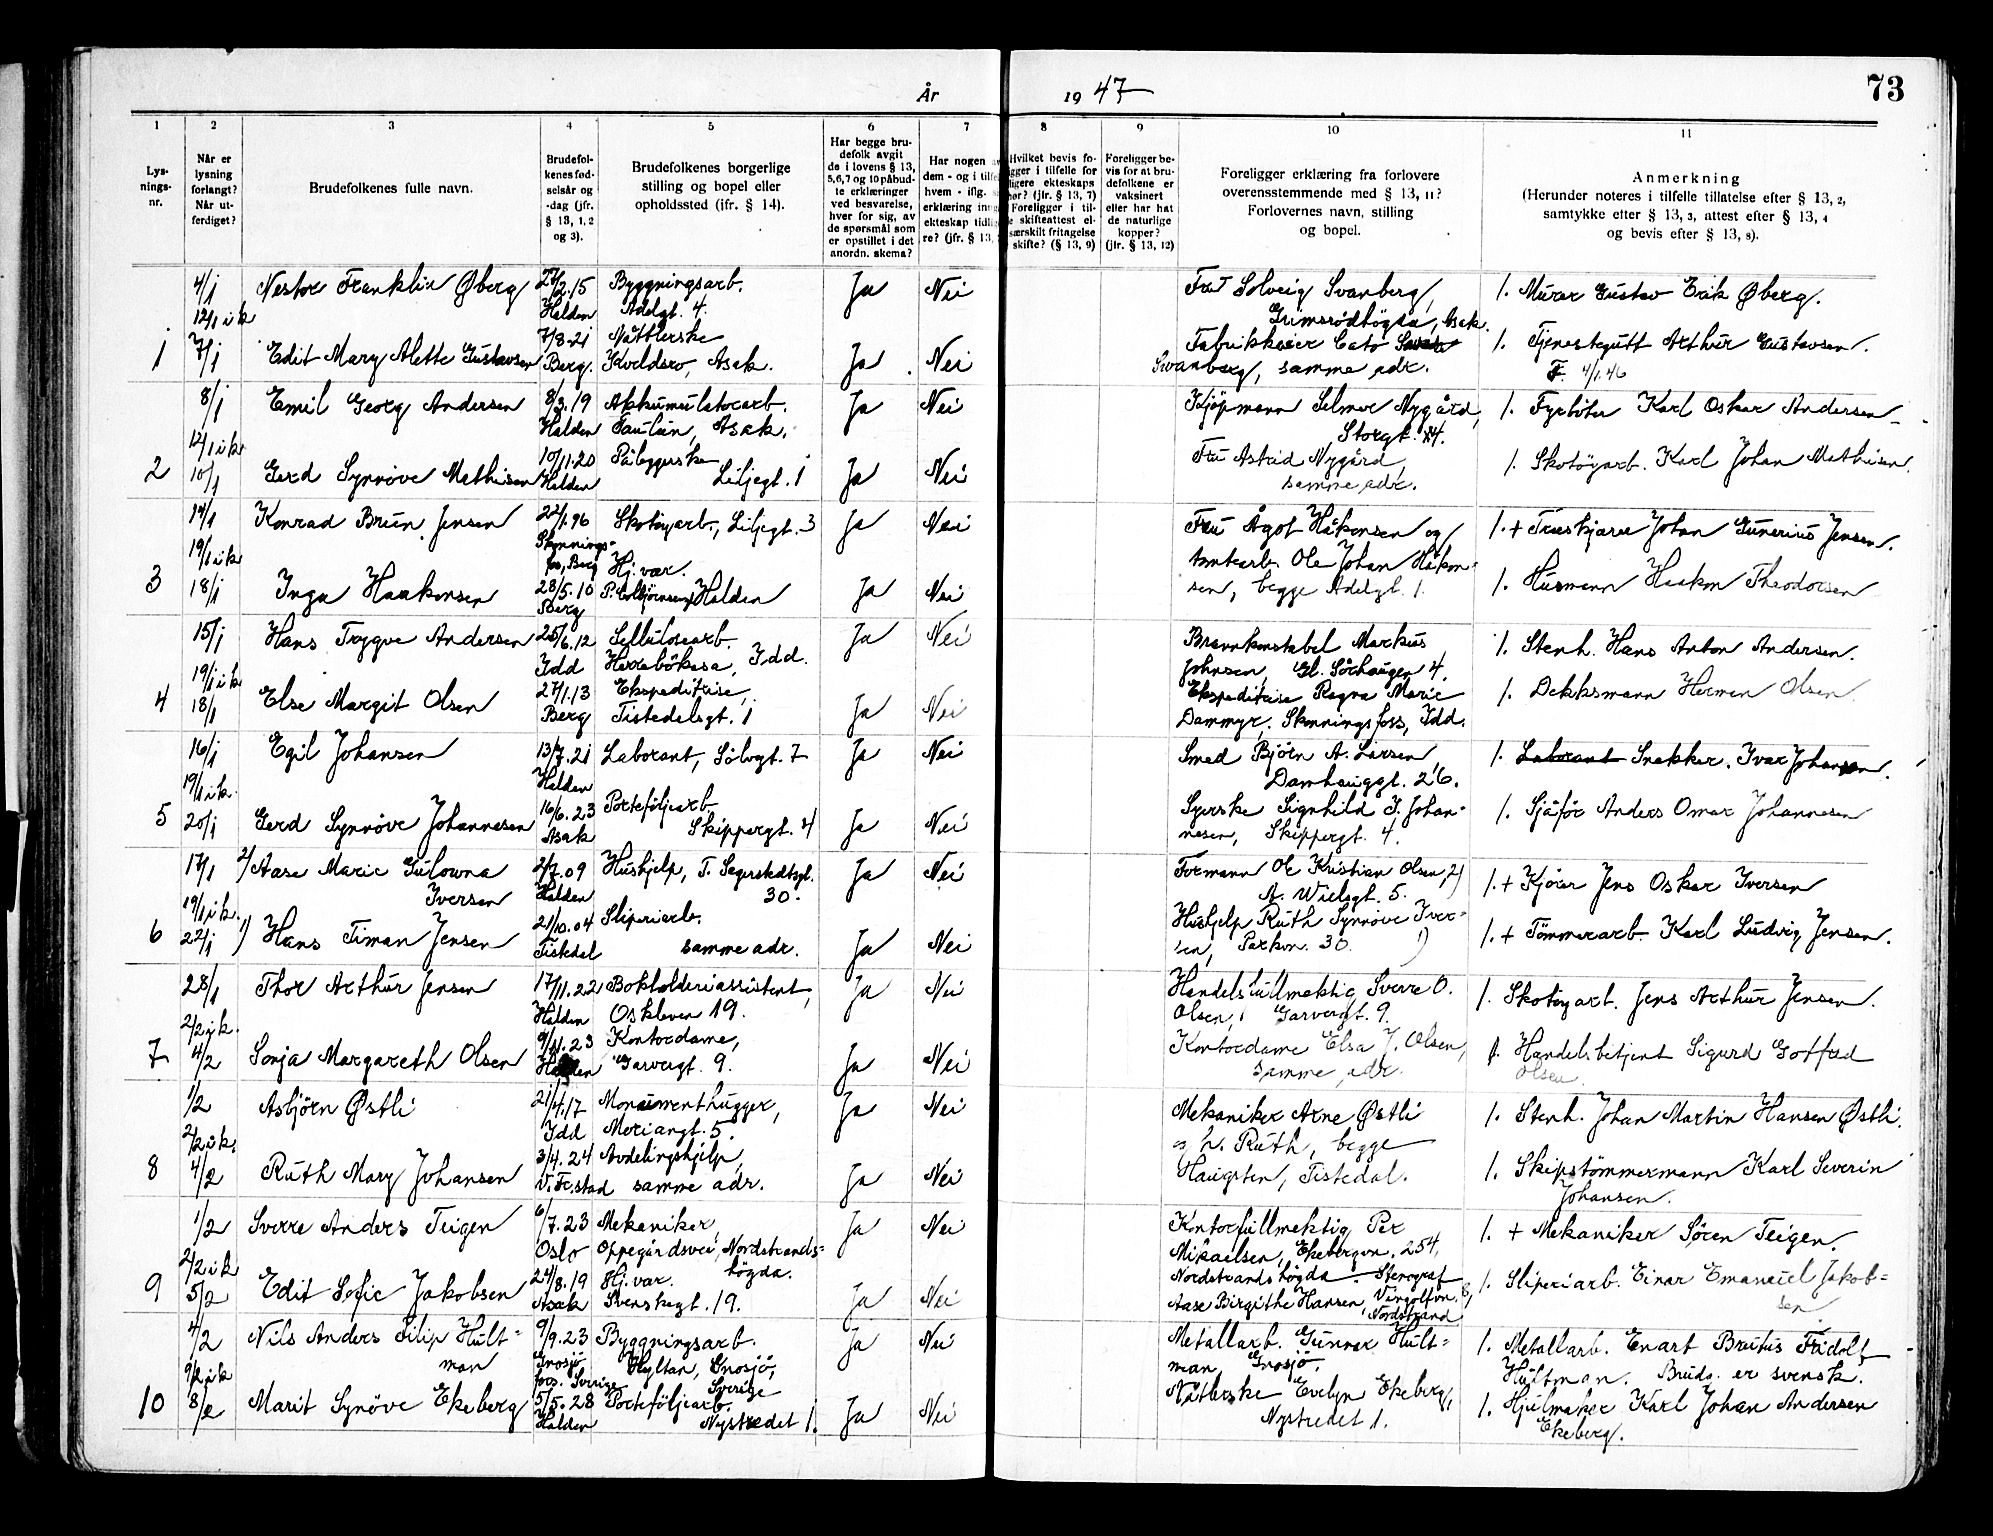 73
År 1947
1 2 3 4 5 6 7 8 9 10 11
Lysnings-nr.
Når er lysning forlangt? Når utferdiget?
Brudefolkenes fulle navn.
Brudefolkenes fødselsår og -dag (jfr. § 13, 1, 2 og 3).
Brudefolkenes borgerlige stilling og bopel eller opholdssted (ifr. § 14).
Har begge brudefolk avgit de i lovens § 13, 5,6,7 og 10 påbudte erklæringer ved besvarelse, hver for sig, av de spørsmål som er opstillet i det anordn. skema?
Har nogen
dem - og i
hvem - iflg.
erklæring
ekteskap
re? (jfr. § 13,
Hvilket bevis fo-
gger i tilfelle for
ligere ekteskaps
hør? (jfr. § 13, 7)
Foreligger i til-
e skifteattest el-
særskilt fritagelse
skifte? (§ 13, 9)
Foreligger bevis for at brudefolkene er vaksinert eller har hat de naturlige kopper? (jfr. § 13, 12)
Foreligger erklæring fra forlovere overensstemmende med § 13, 11? Forlovernes navn, stilling og bopel.
Anmerkning
(Herunder noteres i tilfelle tillatelse efter § 13, 2, samtykke efter § 13, 3, attest efter § 13, 4 og bevis efter § 13, 8).
4/1 Nestor Franklin Øberg 27/2.15 Byggningsarb. Ja Nei Fru Solveig Svanberg, 1. Murer Gustav Erik Øberg.
12/1 i k Halden Adelgt. 4. Grimsrødhøgda, Asak.
1 7/1 Edit Mary Alette Gustavsen 7/8-21 Nåtlerske Ja Nei Fabrikkeier Cato 1. Tjenestegutt Arthur Gustavsen.
Berg. Kveldsro, Asak. Svanberg, samme adr. F. 4/1.46
8/1 Emil Georg Andersen 8/3.19 Akkumulatorarb. Ja Nei Kjøpmann Selmer Nygård, 1. Fyrbøter Karl Oskar Andersen
12/1 i k. Halden Asak. Storgt.
2 10/1 Gerd Synnøve Mathisen 10/11.20 Påleggerske Ja Nei Fru Astrid Nygård, 1. Skotøyarb. Karl Johan Mathisen.
Halden Liljegt. 1 samme adr.
14/1 Konrad Brun Jensen 22/1.96 Skotøyarb., Liljegt. 3 Ja Nei Fru Ågot Håkonsen og 1. + Træskjærer Johan Gunerius Jensen.
19/1 i k Skonnings-fos, Berg Ole Johan Håkon-
3 18/1 Inga Haakonsen 28/5.10 Hj. vær. Ja Nei sen, begge Adelgt. 1. 1. Husmann Haakon Theodorsen
Berg P. Colbjørnsensgt. Halden
15/1 Hans Trygve Andersen 25/6.12 Sellulosearb. Ja Nei Brannkonstabel Markus 1. Stenh. Hans Anton Andersen.
19/1 i k Idd Herrebøkasa, Idd. Johnsen, Gl. Sørhaugen 4.
4 18/1 Else Margit Olsen 27/1.13 Ekspeditrise, Ja Nei Ekspeditrise Ragna Marie 1. Dekksmann Herman Olsen
Berg Tistedalsgt. 1 Dammyr, Skonningsfoss, Idd.
16/1 Egil Johansen 13/7.21 Laborant, Sølvgt. 7 Ja Nei Smed Bjørn A. Larsen, 1. Laborant Snekker. Ivar Johansen.
19/1 i k. Halden Damhauggt. 26.
5 20/1 Gerd Synnøve Johannesen 16/6.23 Porteføljearb. Ja Nei Syerske Signhild I. Johan- 1. Sjåfør Anders Omar Johannesen
Asak Skippergt. 4 nesen, Skippergt. 4.
17/1 2) Aase Marie Gulowna 2/7.09 Hushjelp, T. Segerstedtsgt. Ja Nei Formann Ole Kristian Olsen, 2) 1. + Kjører Jens Oskar Iversen
19/1 i k. Iversen Halden 30. A. Wielsgt. 5.
6 22/1 1) Hans Timan Jensen 21/10.04 Sliperiarb. Ja Nei Hushjelp Ruth Synnøve Iver- 1. + Tømmerarb. Karl Ludvig Jensen.
Tistedal samme adr. sen, Parkvn. 30. 1)
28/1 Thor Arthur Jensen 17/11.22 Bokholderiassistent, Ja Nei Handelsfullmektig Sverre O. 1. Skotøyarb. Jens Arthur Jensen.
2/2 i k. Halden Oskleven 19. Olsen, Garvergt. 9.
7 4/2 Sonja Margareth Olsen 9/11.23 Kontordame, Ja Nei Kontordame Elsa J. Olsen, 1. Handelsbetjent Sigurd Gotfred
Halden Garvergt. 9. samme adr. Olsen.
1/2 Asbjørn Østli 21/4.17 Monumenthugger, Ja Nei Mekaniker Arne Østli 1. Stenh. Johan Martin Hansen Østli.
2/2 i k. Idd Meriangt. 5. og h. Ruth, begge
8 4/2 Ruth Mary Johansen 3/4.24 Avdelingshjelp, Ja Nei Haugsten, Tistedal. 1. Skipstømmermann Karl Severin
V. Fr.stad samme adr. Johansen.
1/2 Sverre Anders Teigen 6/7.23 Mekaniker, Ja Nei Kontorfullmektig Per 1. + Mekaniker Søren Teigen.
2/2 i k Oslo Oppegårdsvei, Nordstrands-høgda. Mikaelsen, Ekebergvn. 254,
9 5/2 Edit Sofie Jakobsen 24/8.19 Hj. vær. Ja Nei Nordstrandshøgda. Stenograf 1. Sliperiarb. Einar Emanuel Jakob-
Asak Svenskegt. 19. Aase Birgithe Hansen, Vingolfvn. 8, Nordstrand sen
4/2 Nils Anders Filip Hult- 9/9.23 Byggningsarb. Ja Nei Metallarb. Gunnar Hult- 1. Metallarb. Enart Brutus Fridolf
9/2 i k man Gnosjö fors. Sverige Hyltan, Gnosjö, Sverige man, Gnosjö. Hultman. Brudg. er svensk.
10 8/2 Marit Synøve Ekeberg 5/5.28 Porteføljearb. Ja Nei Nåtlerske Evelyn Ekeberg, 1. Hjulmaker Karl Johan Andersen
Halden Nystredet 1. Nystredet 1. Ekeberg.